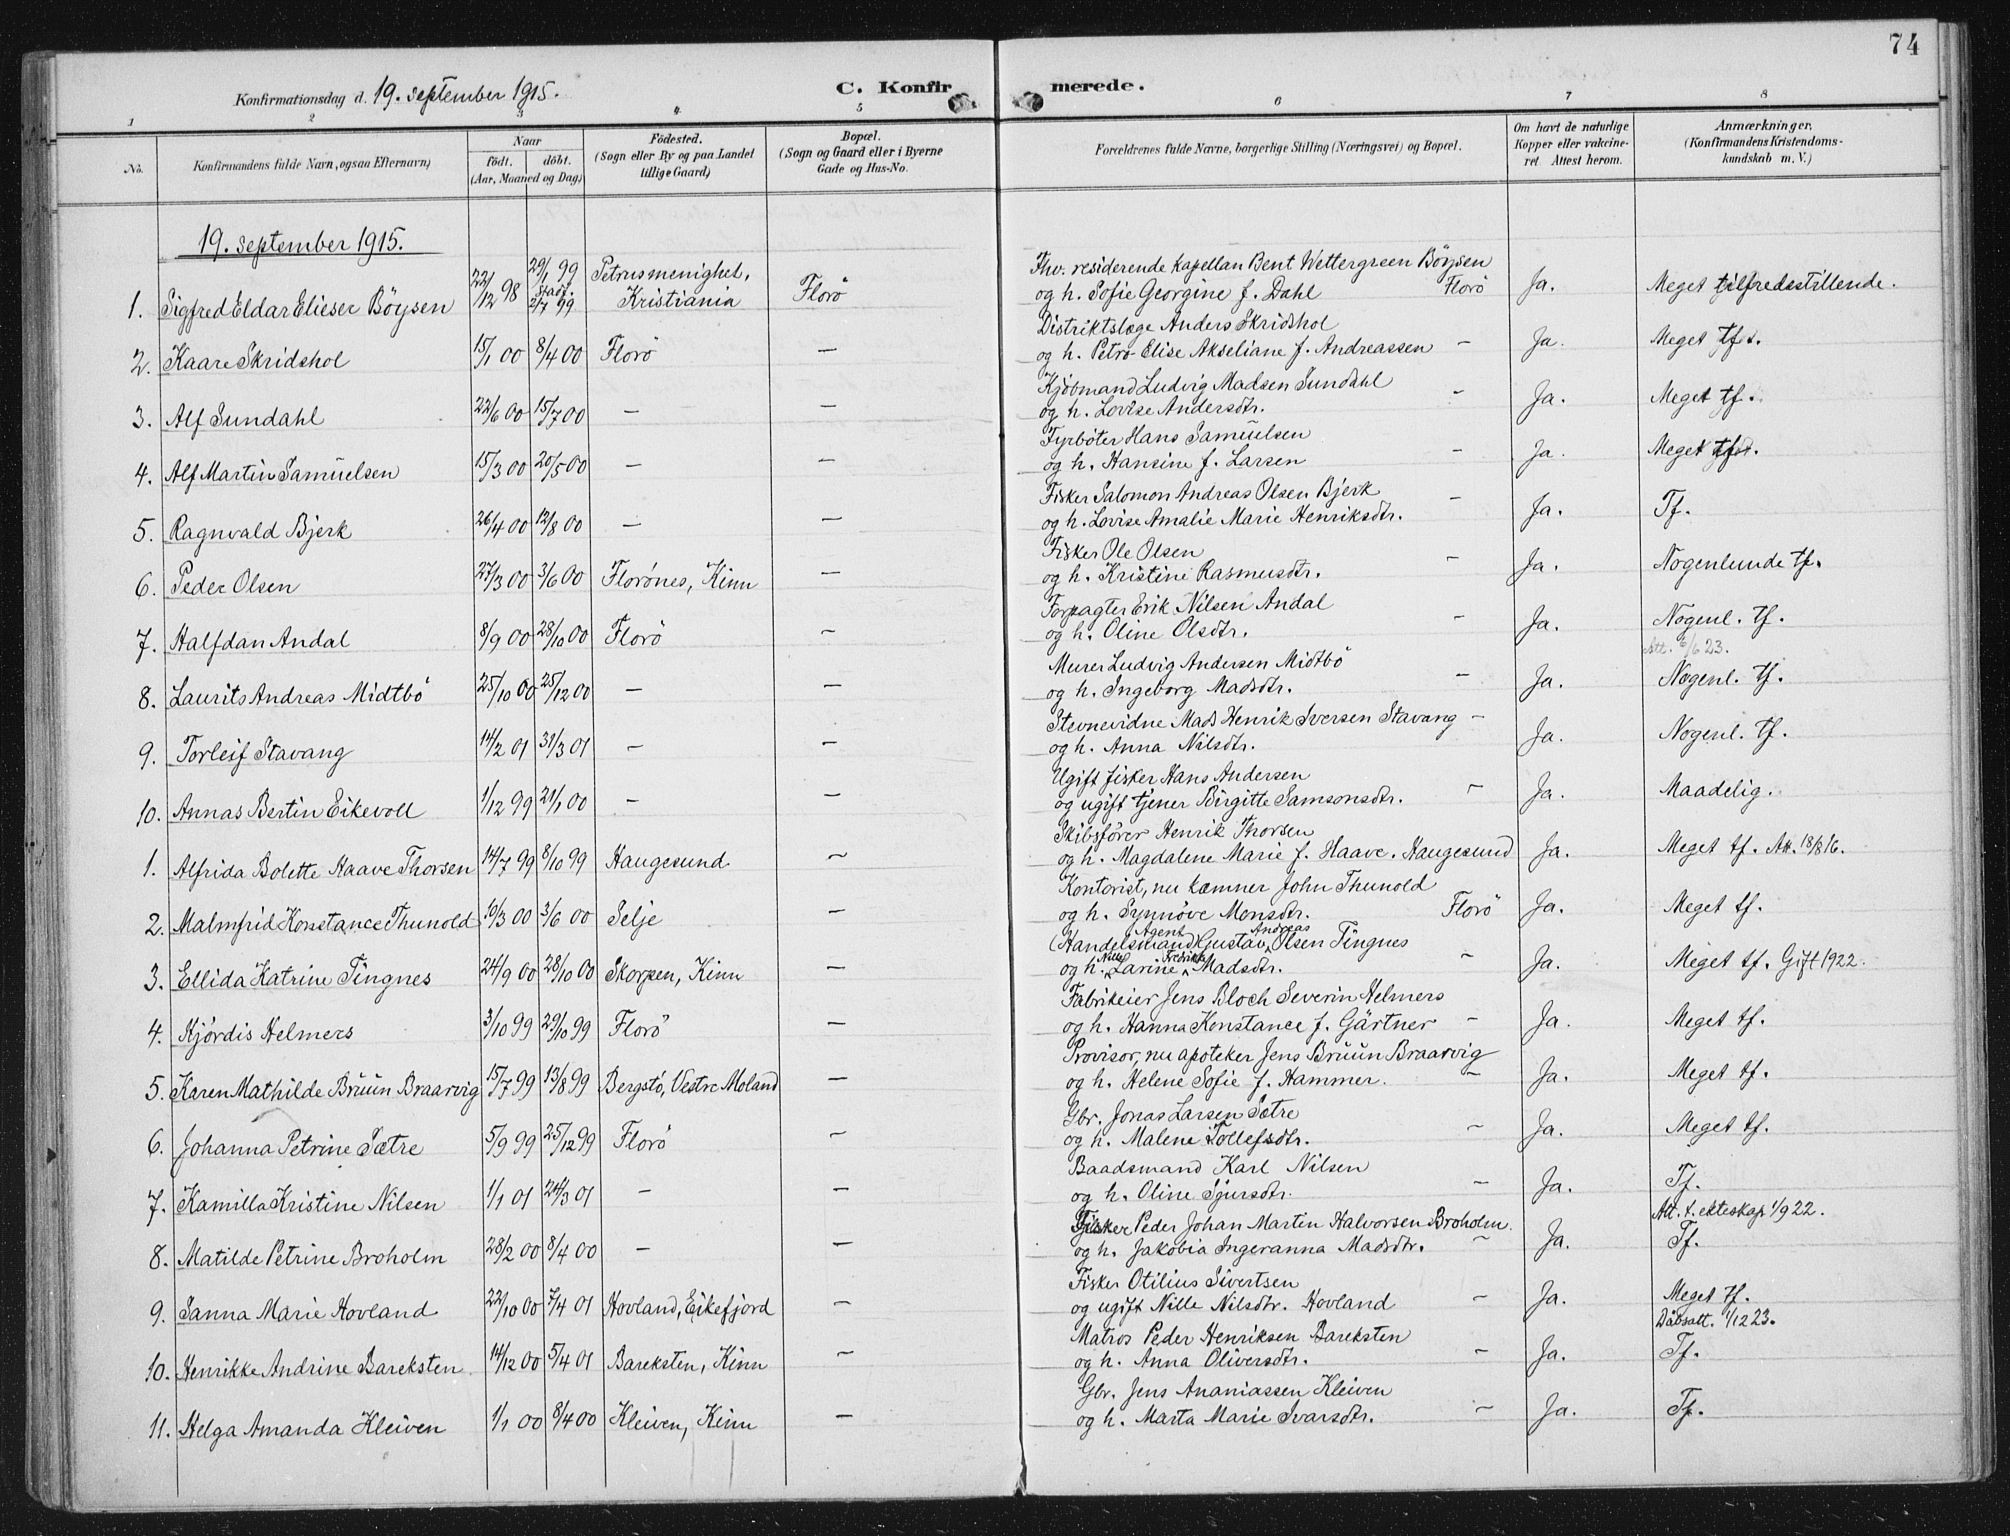 74
Konfirmationsdag d. 19. september 1915.
C. Konfirmerede.
1 2 3 4 5 6 7 8
No.
Konfirmandens fulde Navn, ogsaa Efternavn)
Naar
födt. döbt.
(Aar, Maaned og Dag)
Födested.
(Sogn eller By og paa Landet
tillige Gaard)
Bopæl.
(Sogn og Gaard eller i Byerne
Gade og Hus-No.
Forældrenes fulde Navne, borgerlige Stilling (Næringsvei) og Bopæl.
Om havt de naturlige
Kopper eller vakcine-
ret. Attest herom.
Anmærkninger.
(Konfirmandens Kristendoms-
kundskab m. V.)
19. september 1915.
1. Sigfred Eldar Elieser Böysen 22/12 98 29/1 99 stadf. 2/7 99 Petrusmenighet, Kristiania Florö
Fhv. residerende kapellan Bent Wettergreen Böysen
og h. Sofie Georgine f. Dahl Florö Ja. Meget tilfredsstillende.
2. Kaare Skridshol 15/1 00 8/4 00 Florö —
Distriktslæge Anders Skridshol
og h. Petra Elise Akseliane f. Andreassen — Ja. Meget tf.
3. Alf Sundahl 22/6 00 15/7 00 — —
Kjöbmand Ludvig Madsen Sundahl
og h. Lovise Andersdtr. — Ja. Meget tf.
4. Alf Martin Samuelsen 15/3 00 20/5 00 — —
Fyrböter Hans Samuelsen
og h. Hansine f. Larsen — Ja. Meget tf.
5. Ragnvald Bjerk 26/4 00 12/8 00 — —
Fisker Salomon Andreas Olsen Bjerk
og h. Lovise Amalie Marie Henriksdtr. — Ja. Tf.
6. Peder Olsen 27/3 00 3/6 00 Florönes, Kinn —
Fisker Ole Olsen
og h. Kristine Rasmusdtr. — Ja. Nogenlunde tf.
7. Halfdan Andal 8/9 00 28/10 00 Florö —
Forpagter Erik Nilsen Andal
og h. Oline Olsdtr. — Ja. Nogenl. tf.
Att. 6/6 23.
8. Laurits Andreas Midtbö 25/10 00 25/12 00 — —
Murer Ludvig Andersen Midtbö
og h. Ingeborg Madsdtr. — Ja. Nogenl. tf.
9. Torleif Stavang 14/2 01 31/3 01 — —
Stevnevidne Mads Henrik Iversen Stavang —
og h. Anna Nilsdtr. Ja. Nogenl. tf.
10. Annas Bertin Eikevoll 1/12 99 21/1 00 — —
Ugift fisker Hans Andersen
og ugift tjener Birgitte Samsonsdtr. — Ja. Maadelig.
1. Alfrida Bolette Haave Thorsen 14/7 99 8/10 99 Haugesund —
Skibsförer Henrik Thorsen
og h. Magdalene Marie f. Haave. Haugesund Ja. Meget tf. Att. 18/8 16.
2. Malmfrid Konstance Thunold 10/3 00 3/6 00 Selje —
Kontorist, nu kæmner John Thunold
og h. Synnöve Monsdtr. Florö Ja. Meget tf.
3. Ellida Katrine Tingnes 24/9 00 28/10 00 Skorpen, Kinn —
Agent Andreas
(Handelsmand) Gustav Olsen Tingnes
Nille Fredrikke
og h. Larine Madsdtr. — Ja. Meget tf. Gift 1922.
4. Hjördis Helmers 3/10 99 29/10 99 Florö —
Fabrikeier Jens Bloch Severin Helmers
og h. Hanna Konstance f. Gärtner — Ja. Meget tf.
5. Karen Mathilde Bruun Braarvig 15/7 99 13/8 99 Bergstö, Vestre Moland —
Provisor, nu apoteker Jens Bruun Braarvig
og h. Helene Sofie f. Hammer. — Ja. Meget tf.
6. Johanna Petrine Sætre 5/9 99 25/12 99 Florö —
Gbr. Jonas Larsen Sætre
og h. Malene Tollefsdtr. — Ja. Meget tf.
7. Kamilla Kristine Nilsen 1/1 01 24/3 01 — —
Baadsmand Karl Nilsen
og h. Oline Sjursdtr. — Ja. Tf.
Att. t. ekteskap 1/9 22.
8. Matilde Petrine Broholm 28/2 00 8/4 00 — —
Fisker Peder Johan Martin Halvorsen Broholm.
og h. Jakobia Ingeranna Madsdtr. — Ja. Tf.
9. Sanna Marie Hovland 22/10 00 7/4 01 Hovland, Eikefjord —
Fisker Otilius Sivertsen
og ugift Nille Nilsdtr. Hovland — Ja. Meget tf.
Dåbsatt. 1/12 23.
10. Henrikke Andrine Bareksten 14/12 00 5/4 01 Bareksten, Kinn —
Matros Peder Henriksen Bareksten
og h. Anna Oliversdtr. — Ja. Tf.
11. Helga Amanda Kleiven 1/1 00 8/4 00 Kleiven, Kinn —
Gbr. Jens Ananiassen Kleiven
og h. Marta Marie Ivarsdtr. — Ja. Tf.